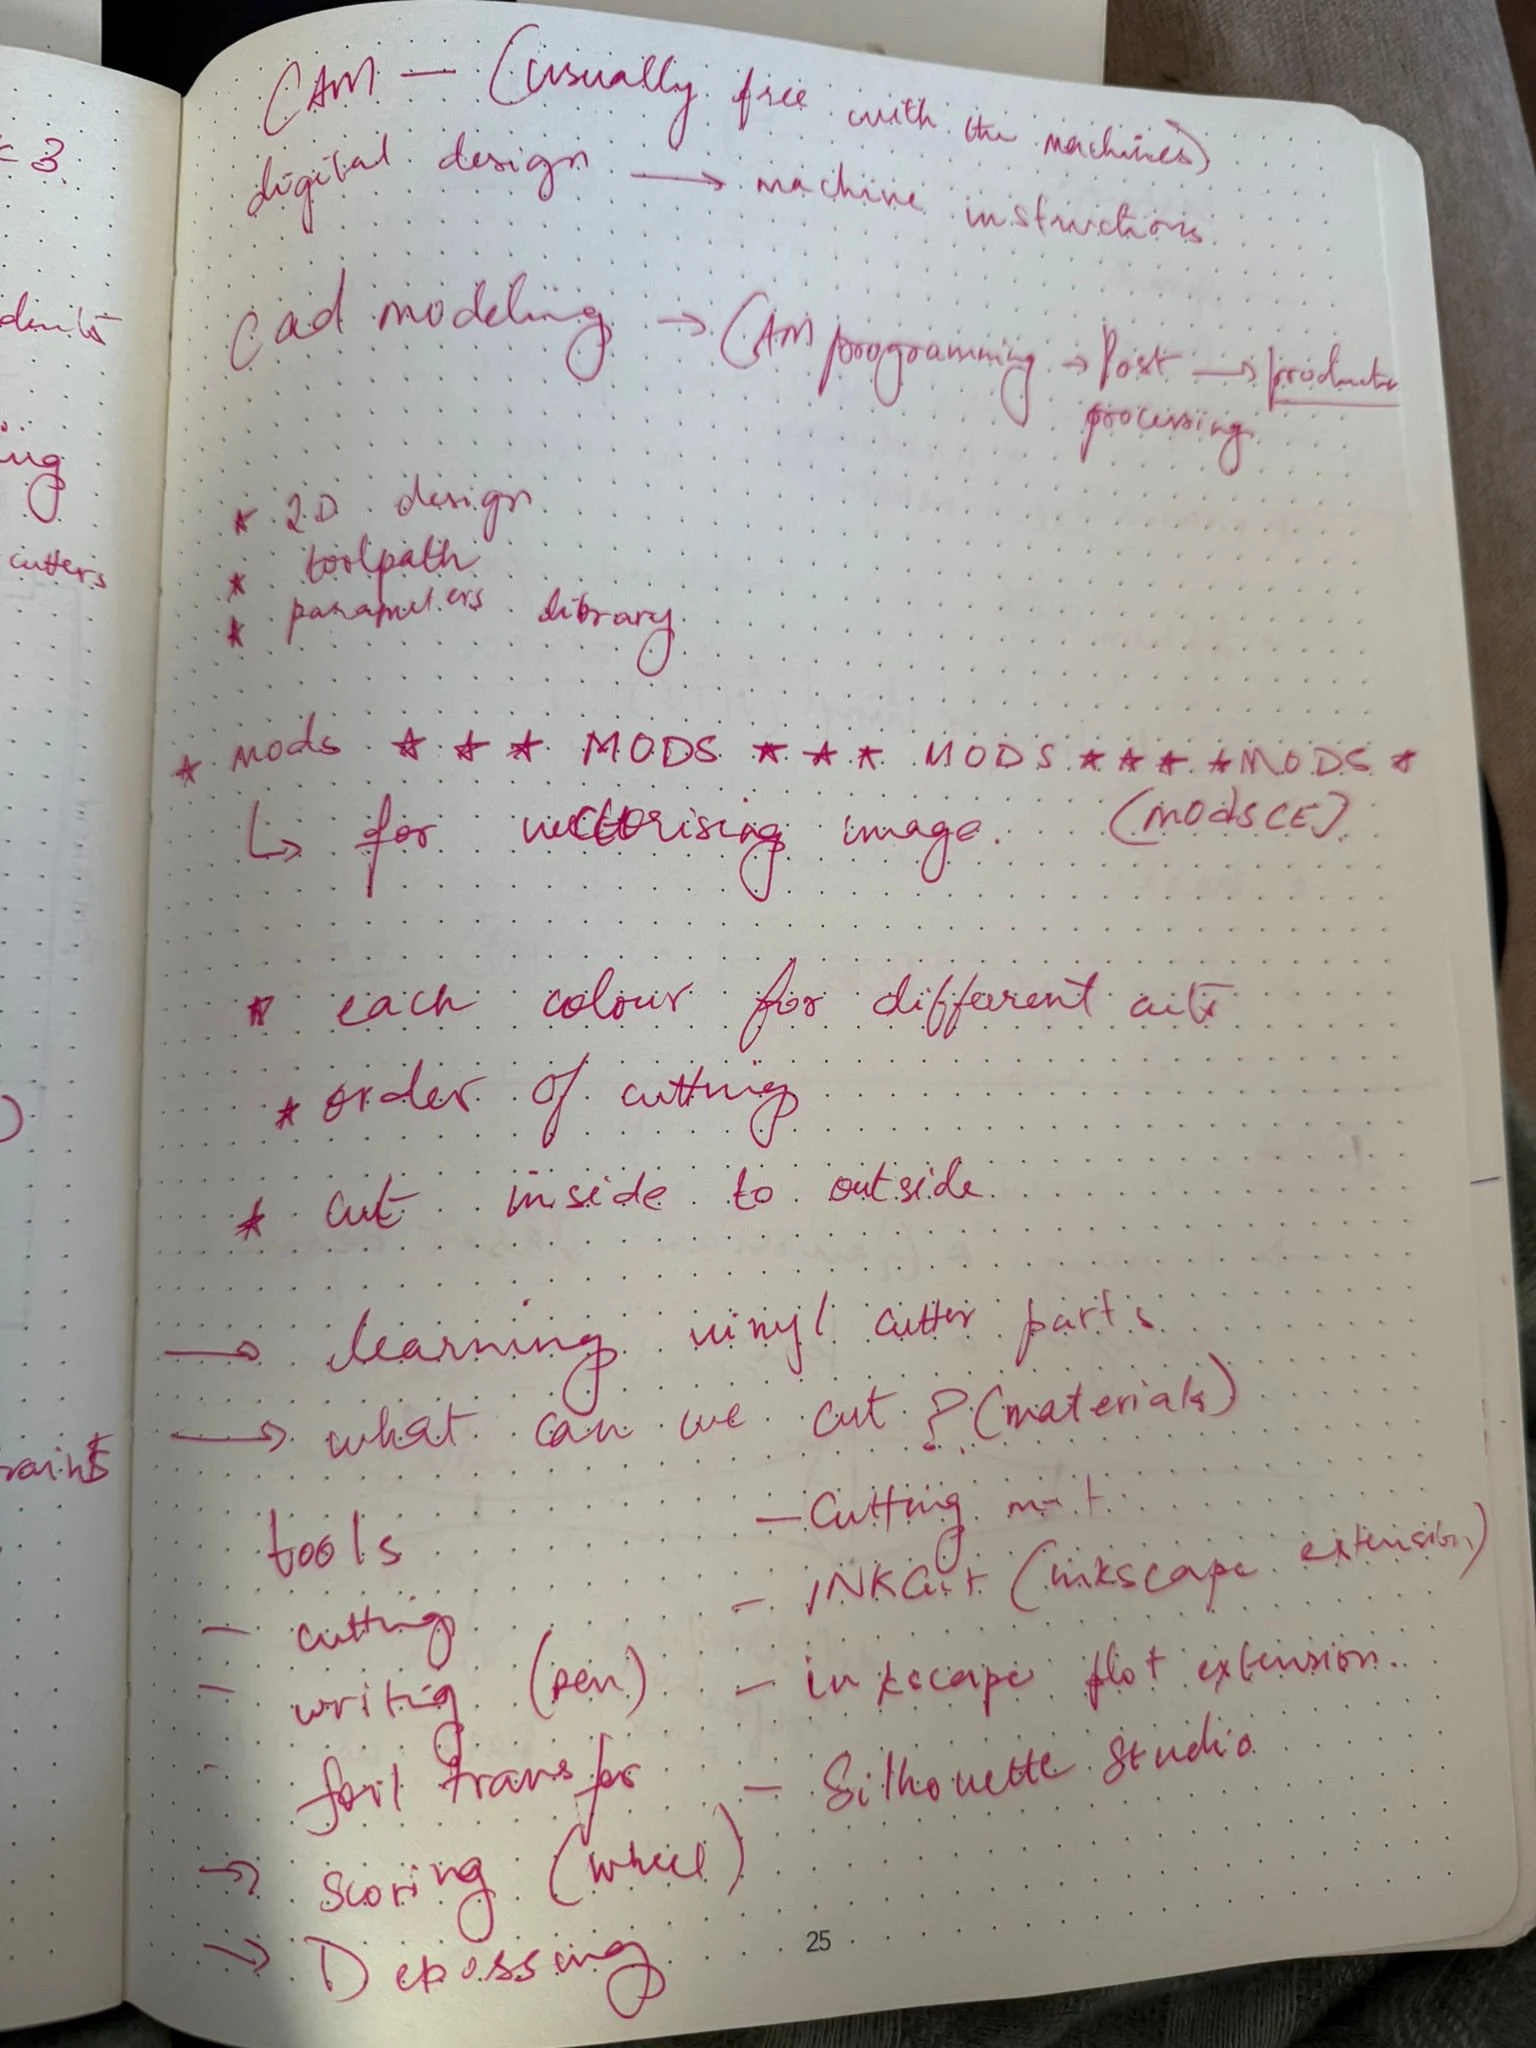 CAM — (usually free with the machines)
digital design → machine instructions
Cad modeling → CAM programming → Post processing → production
* 2D design
* toolpath
* parameters library
* mods * * * MODS * * * MODS * * * * MODS *
↳ for vectorising image. (modsCE)
* each colour for different cuts
* order of cutting
* cut inside to outside
→ learning vinyl cutter parts
→ what can we cut? (materials)
tools
- cutting
- writig (pen)
- foil transfer
→ scoring (wheel)
→ Debossing
- Cutting mat
- INKCut (inkscape extension)
- inkscape plot extension
- Silhouette Studio
25
< 3
ing
cutters